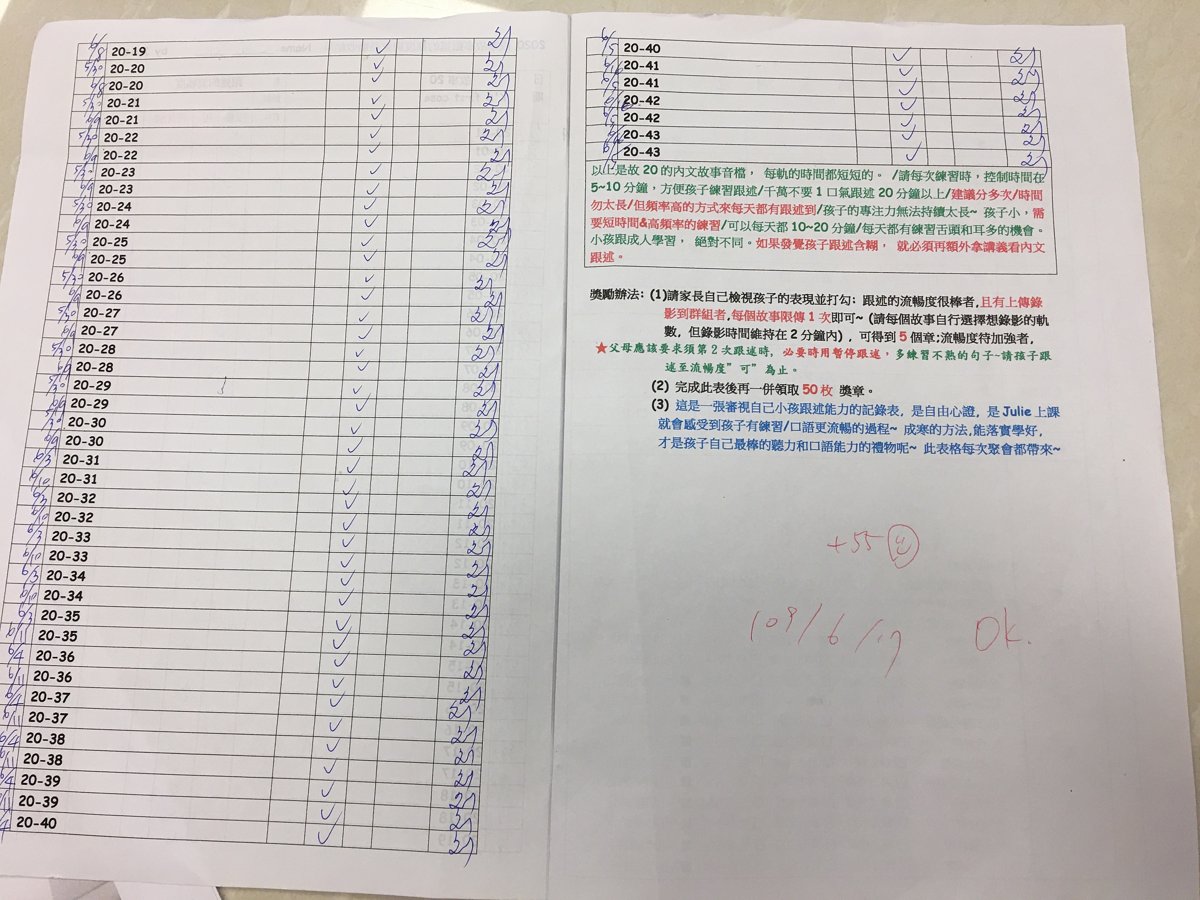 6/8 20-19 ✓
5/30 20-20 ✓
6/8 20-20 ✓
5/30 20-21 ✓
6/9 20-21 ✓
5/30 20-22 ✓
6/9 20-22 ✓
5/30 20-23 ✓
6/9 20-23 ✓
5/30 20-24 ✓
6/9 20-24 ✓
5/30 20-25 ✓
6/9 20-25 ✓
5/30 20-26 ✓
6/9 20-26 ✓
5/30 20-27 ✓
6/9 20-27 ✓
5/30 20-28 ✓
6/9 20-28 ✓
5/30 20-29 ✓
6/9 20-29 ✓
5/30 20-30 ✓
6/9 20-30 ✓
6/3 20-31 ✓
6/10 20-31 ✓
6/3 20-32 ✓
6/10 20-32 ✓
6/3 20-33 ✓
6/10 20-33 ✓
6/3 20-34 ✓
6/10 20-34 ✓
6/3 20-35 ✓
6/11 20-35 ✓
6/4 20-36 ✓
6/11 20-36 ✓
6/4 20-37 ✓
6/11 20-37 ✓
6/4 20-38 ✓
6/11 20-38 ✓
6/4 20-39 ✓
6/11 20-39 ✓
20-40 ✓
20-40 ✓
20-41 ✓
20-41 ✓
20-42 ✓
20-42 ✓
20-43 ✓
20-43 ✓
以上是故 20 的內文故事音檔， 每軌的時間都短短的。 /請每次練習時，控制時間在
5~10 分鐘，方便孩子練習跟述/千萬不要 1 口氣跟述 20 分鐘以上/建議分多次/時間
勿太長/但頻率高的方式來每天都有跟述到/孩子的專注力無法持續太長~ 孩子小，需
要短時間&高頻率的練習/可以每天都 10~20 分鐘/每天都有練習舌頭和耳多的機會。
小孩跟成人學習， 絕對不同。如果發覺孩子跟述含糊， 就必須再額外拿講義看內文
跟述。
獎勵辦法: (1)請家長自己檢視孩子的表現並打勾: 跟述的流暢度很棒者,且有上傳錄
影到群組者,每個故事限傳 1 次即可~ (請每個故事自行選擇想錄影的軌
數, 但錄影時間維持在 2 分鐘內) , 可得到 5 個章;流暢度待加強者,
★父母應該要求須第 2 次跟述時, 必要時用暫停跟述, 多練習不熟的句子~請孩子跟
述至流暢度"可"為止。
(2) 完成此表後再一併領取 50 枚 獎章。
(3) 這是一張審視自己小孩跟述能力的記錄表, 是自由心證, 是 Julie 上課
就會感受到孩子有練習/口語更流暢的過程~ 成寒的方法,能落實學好,
才是孩子自己最棒的聽力和口語能力的禮物呢~ 此表格每次聚會都帶來~
+55
109/6/17 Ok.